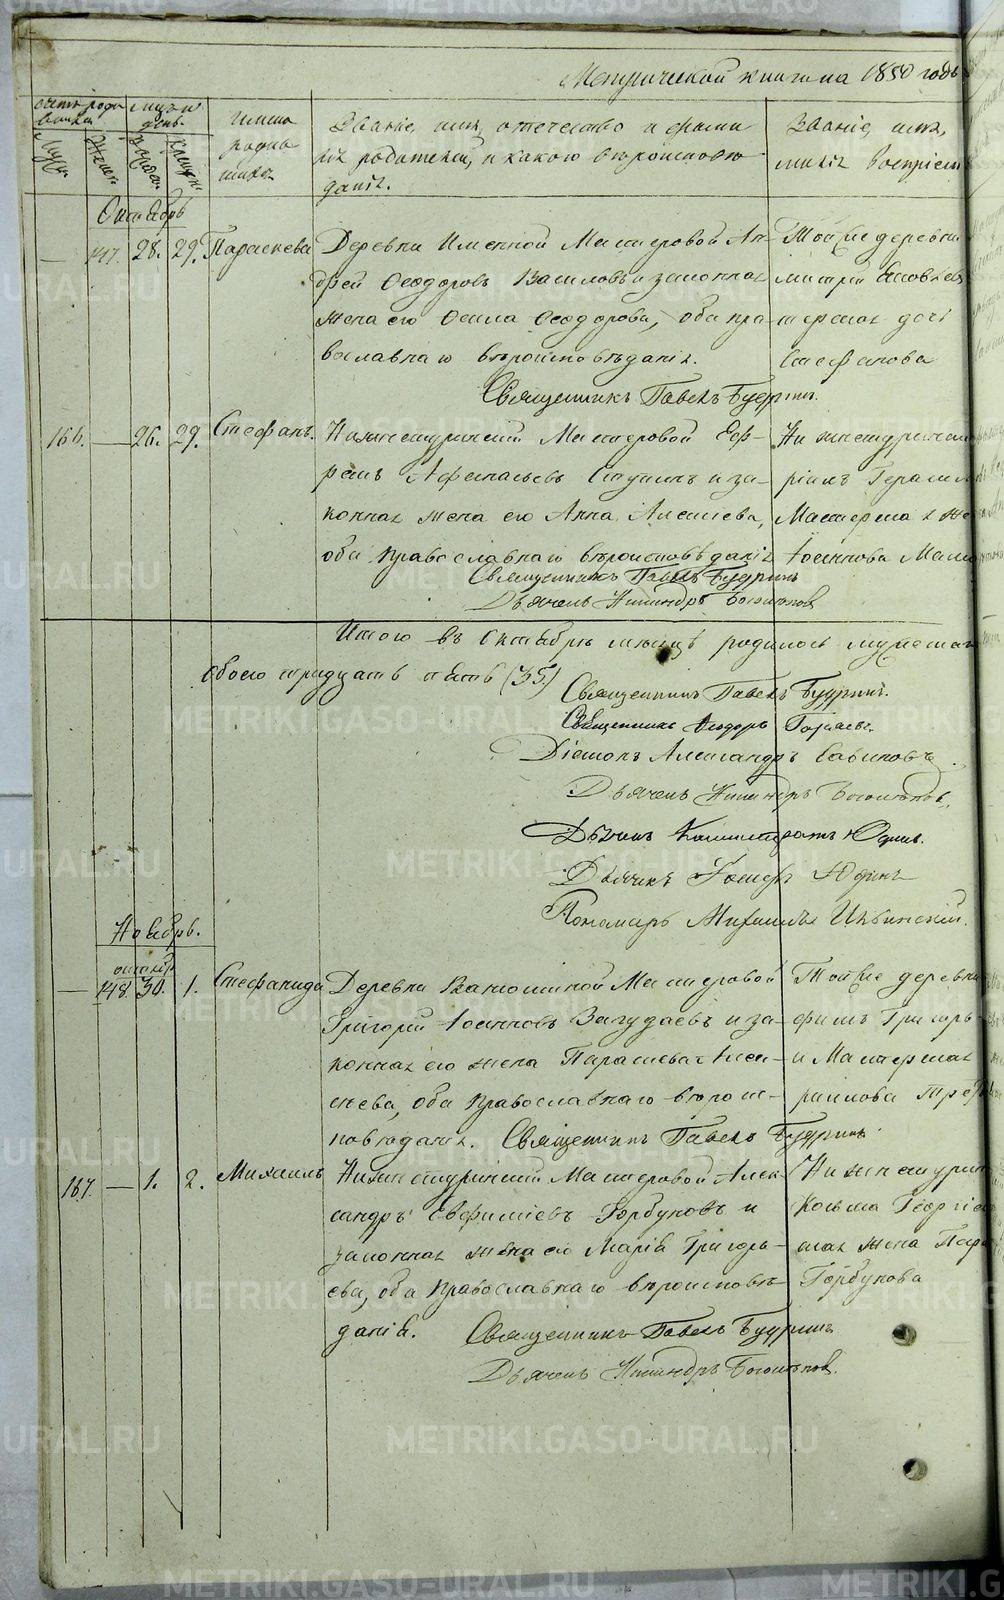 Метрической книги на 1850 годъ
счетъ роди
вшихся
мѣсяцъ и
день
Муж.
Жен.
Рожд.
Крещ.
Имена
родив
шихся
Званіе, имя, отечество и фамилі
я родителей, и какого вѣроисповѣ
данія.
Званіе, имя,
милія воспріем
Октябрь
— 147. 28. 29. Параскева
Деревни Именной Мастеровой Ан-
дрей Ѳеодоровъ Василовъ и законная
жена его Ѳеодорова, оба пра-
вославнаго вѣроисповѣданія.
Священникъ Павелъ Будринъ.
Той же деревни
митрій Яковлев
терская дочь
Стефанова
166. — 26. 29. Стефанъ.
Нижнетуринскій Мастеровой Еф-
ремъ Афанасьевъ и за-
конная жена его Анна Алексіева,
оба Православнаго вѣроисповѣданія
Священникъ Павелъ Будринъ
Дьячекъ Никандръ Боголѣпов
Нижнетуринск
Герасим
Мастерская же
Іоаннова
Итого въ Октябрѣ мѣсяцѣ родилось мужеска
обоего тридцать пять (35.)
Священникъ Павелъ Будринъ.
Священникъ Ѳеодоръ
Діаконъ Александръ Сабинов
Дьячекъ Никандръ Боголѣпов.
Дьячекъ Калистратъ Юдинъ.
Дьячикъ Іосифъ Юдинъ
Пономарь Михаилъ Ильинскій.
Ноябрь.
октябр
— 148. 30. 1. Стефанида
Деревни Мастеровой
Григорій Іоанновъ и за-
конная его жена Параскева Алек-
сіева, оба Православнаго вѣроис-
повѣданія. Священникъ Павелъ Будринъ
Той же деревни
фимъ Григорь-
и Мастерская
167. — 1. 2. Михаилъ
Нижнетуринскій Мастеровой Алек-
сандръ Евфиміевъ Горбуновъ и
законная жена его Марія Григорь-
ева, оба Православнаго вѣроисповѣ-
данія.
Священникъ Павелъ Будринъ
Дьячекъ Никандръ Боголѣпов.
Нижнетурин
Козьма Георгіев
ская жена Пар
Горбунова
METRIKI.GASO-URAL.RU